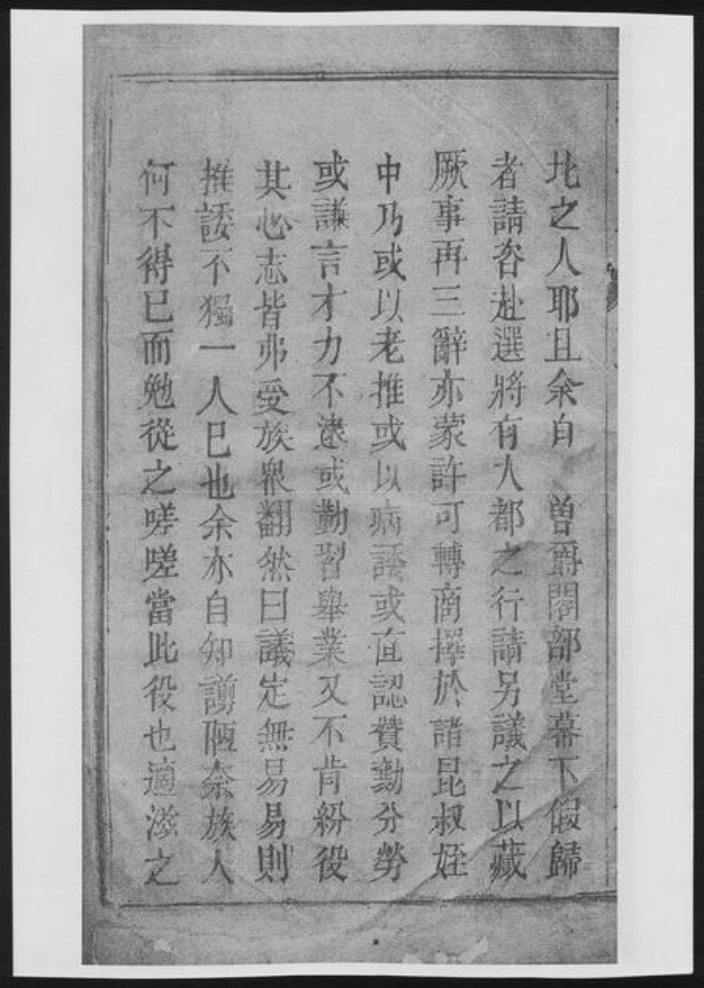 北之人耶且余自 曾爵閣部堂幕下假歸
者請咨赴選將有入都之行請另議之以藏
厥事再三辭亦蒙許可轉商擇於諸昆叔姪
中乃或以老推或以病諉或直認贊勷分勞
或謙言才力不逮或勤習舉業又不肯紛役
其心志皆弗受族衆翻然曰議定無易易則
推諉不獨一人已也余亦自知謭陋奈族人
何不得已而勉從之嗟嗟當此役也適滋之